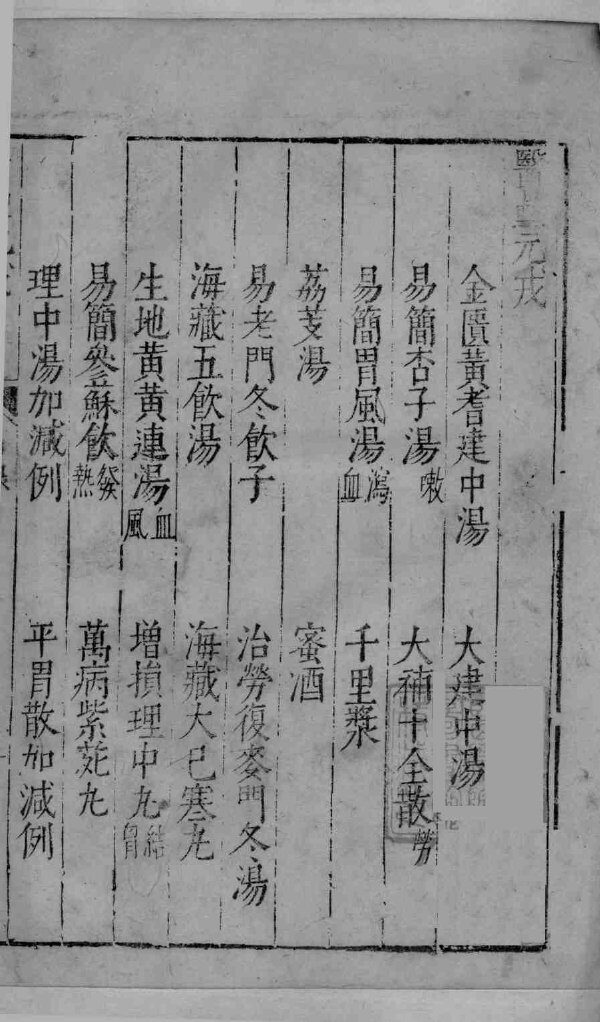 醫壘元戎
金匱黃耆建中湯 大建中湯
易簡杏子湯嗽 大補十全散勞
易簡胃風湯瀉血 千里漿
荔芰湯 蜜酒
易老門冬飲子 治勞復麥門冬湯
海藏五飲湯 海藏大已寒丸
生地黃黃連湯血風 增損理中丸結胷
易簡參蘇飲發熱 萬病紫菀丸
理中湯加減例 平胃散加減例